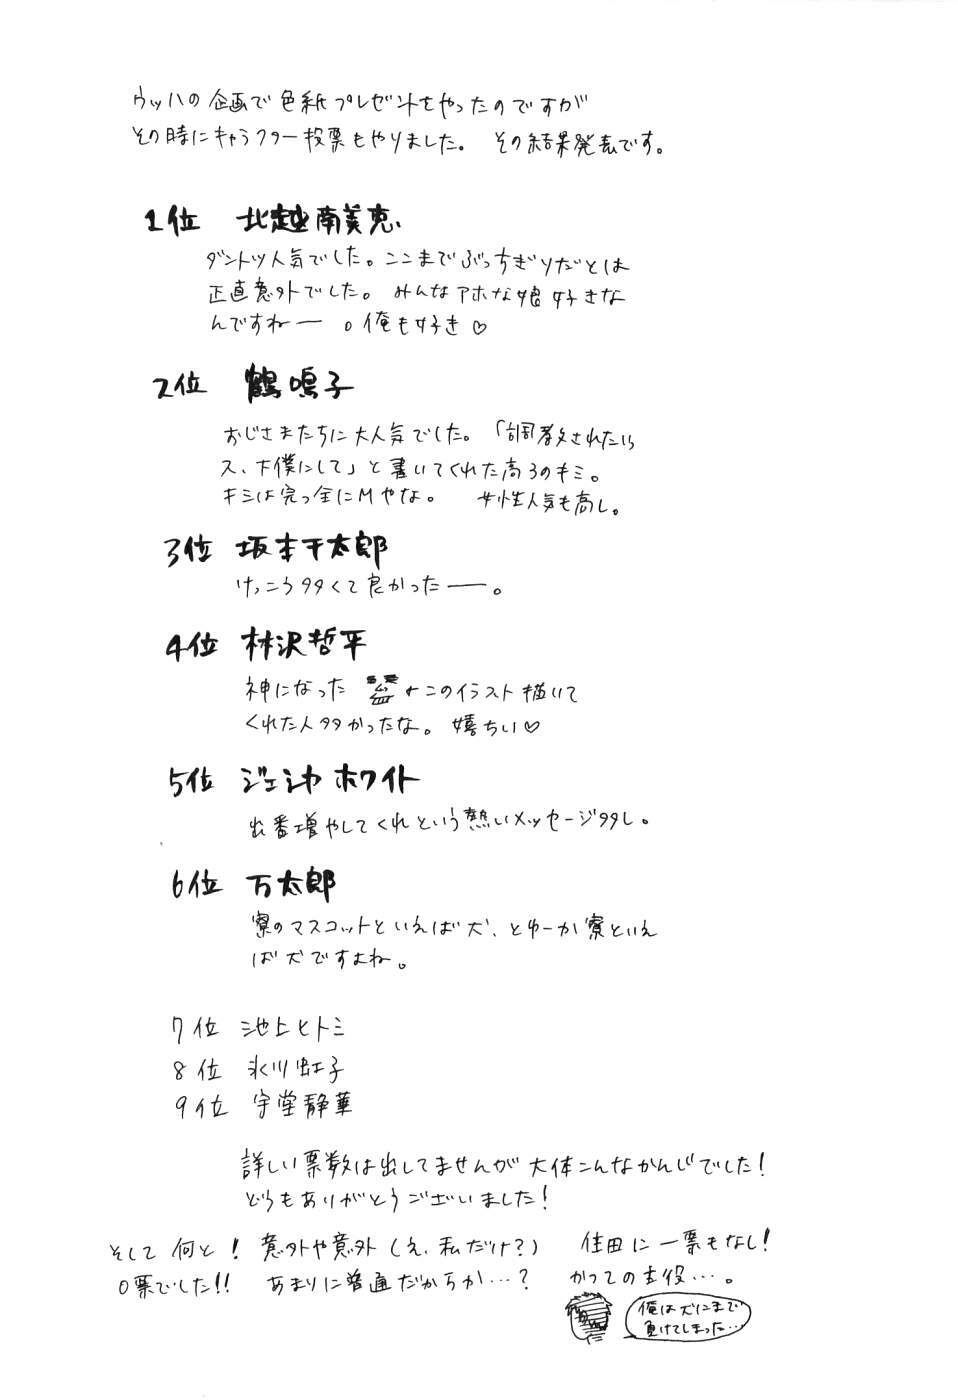 ウッハの企画で色紙プレゼントをやったのですが
その時にキャラクター投票もやりました。 その結果発表です。
1位 北越南美恵
ダントツ人気でした。ここまでぶっちぎりだとは
正直意外でした。みんなアホな娘好きな
んですねー。俺も好き♡
2位 鶴鳴子
おじさまたちに大人気でした。「調教されたいっ
ス、下僕にして」と書いてくれた高3のキミ。
キミは完っ全にMやな。 女性人気も高し。
3位 坂本千太郎
けっこう多くて良かったー。
4位 林沢哲平
神になった ←このイラスト描いて
くれた人多かったな。嬉ちい♡
5位 ジェシカ ホワイト
出番増やしてくれという熱いメッセージ多し。
6位 万太郎
寮のマスコットといえば犬、とゆーか寮といえ
ば犬ですよね。
7位 池上ヒトミ
8位 氷川虹子
9位 宇堂静華
詳しい票数は出してませんが大体こんなかんじでした!
どうもありがとうございました!
そして何と! 意外や意外(え、私だけ?) 住田に一票もなし!
0票でした!! あまりに普通だからか…? かつての主役…。
俺は犬にまで
負けてしまった…